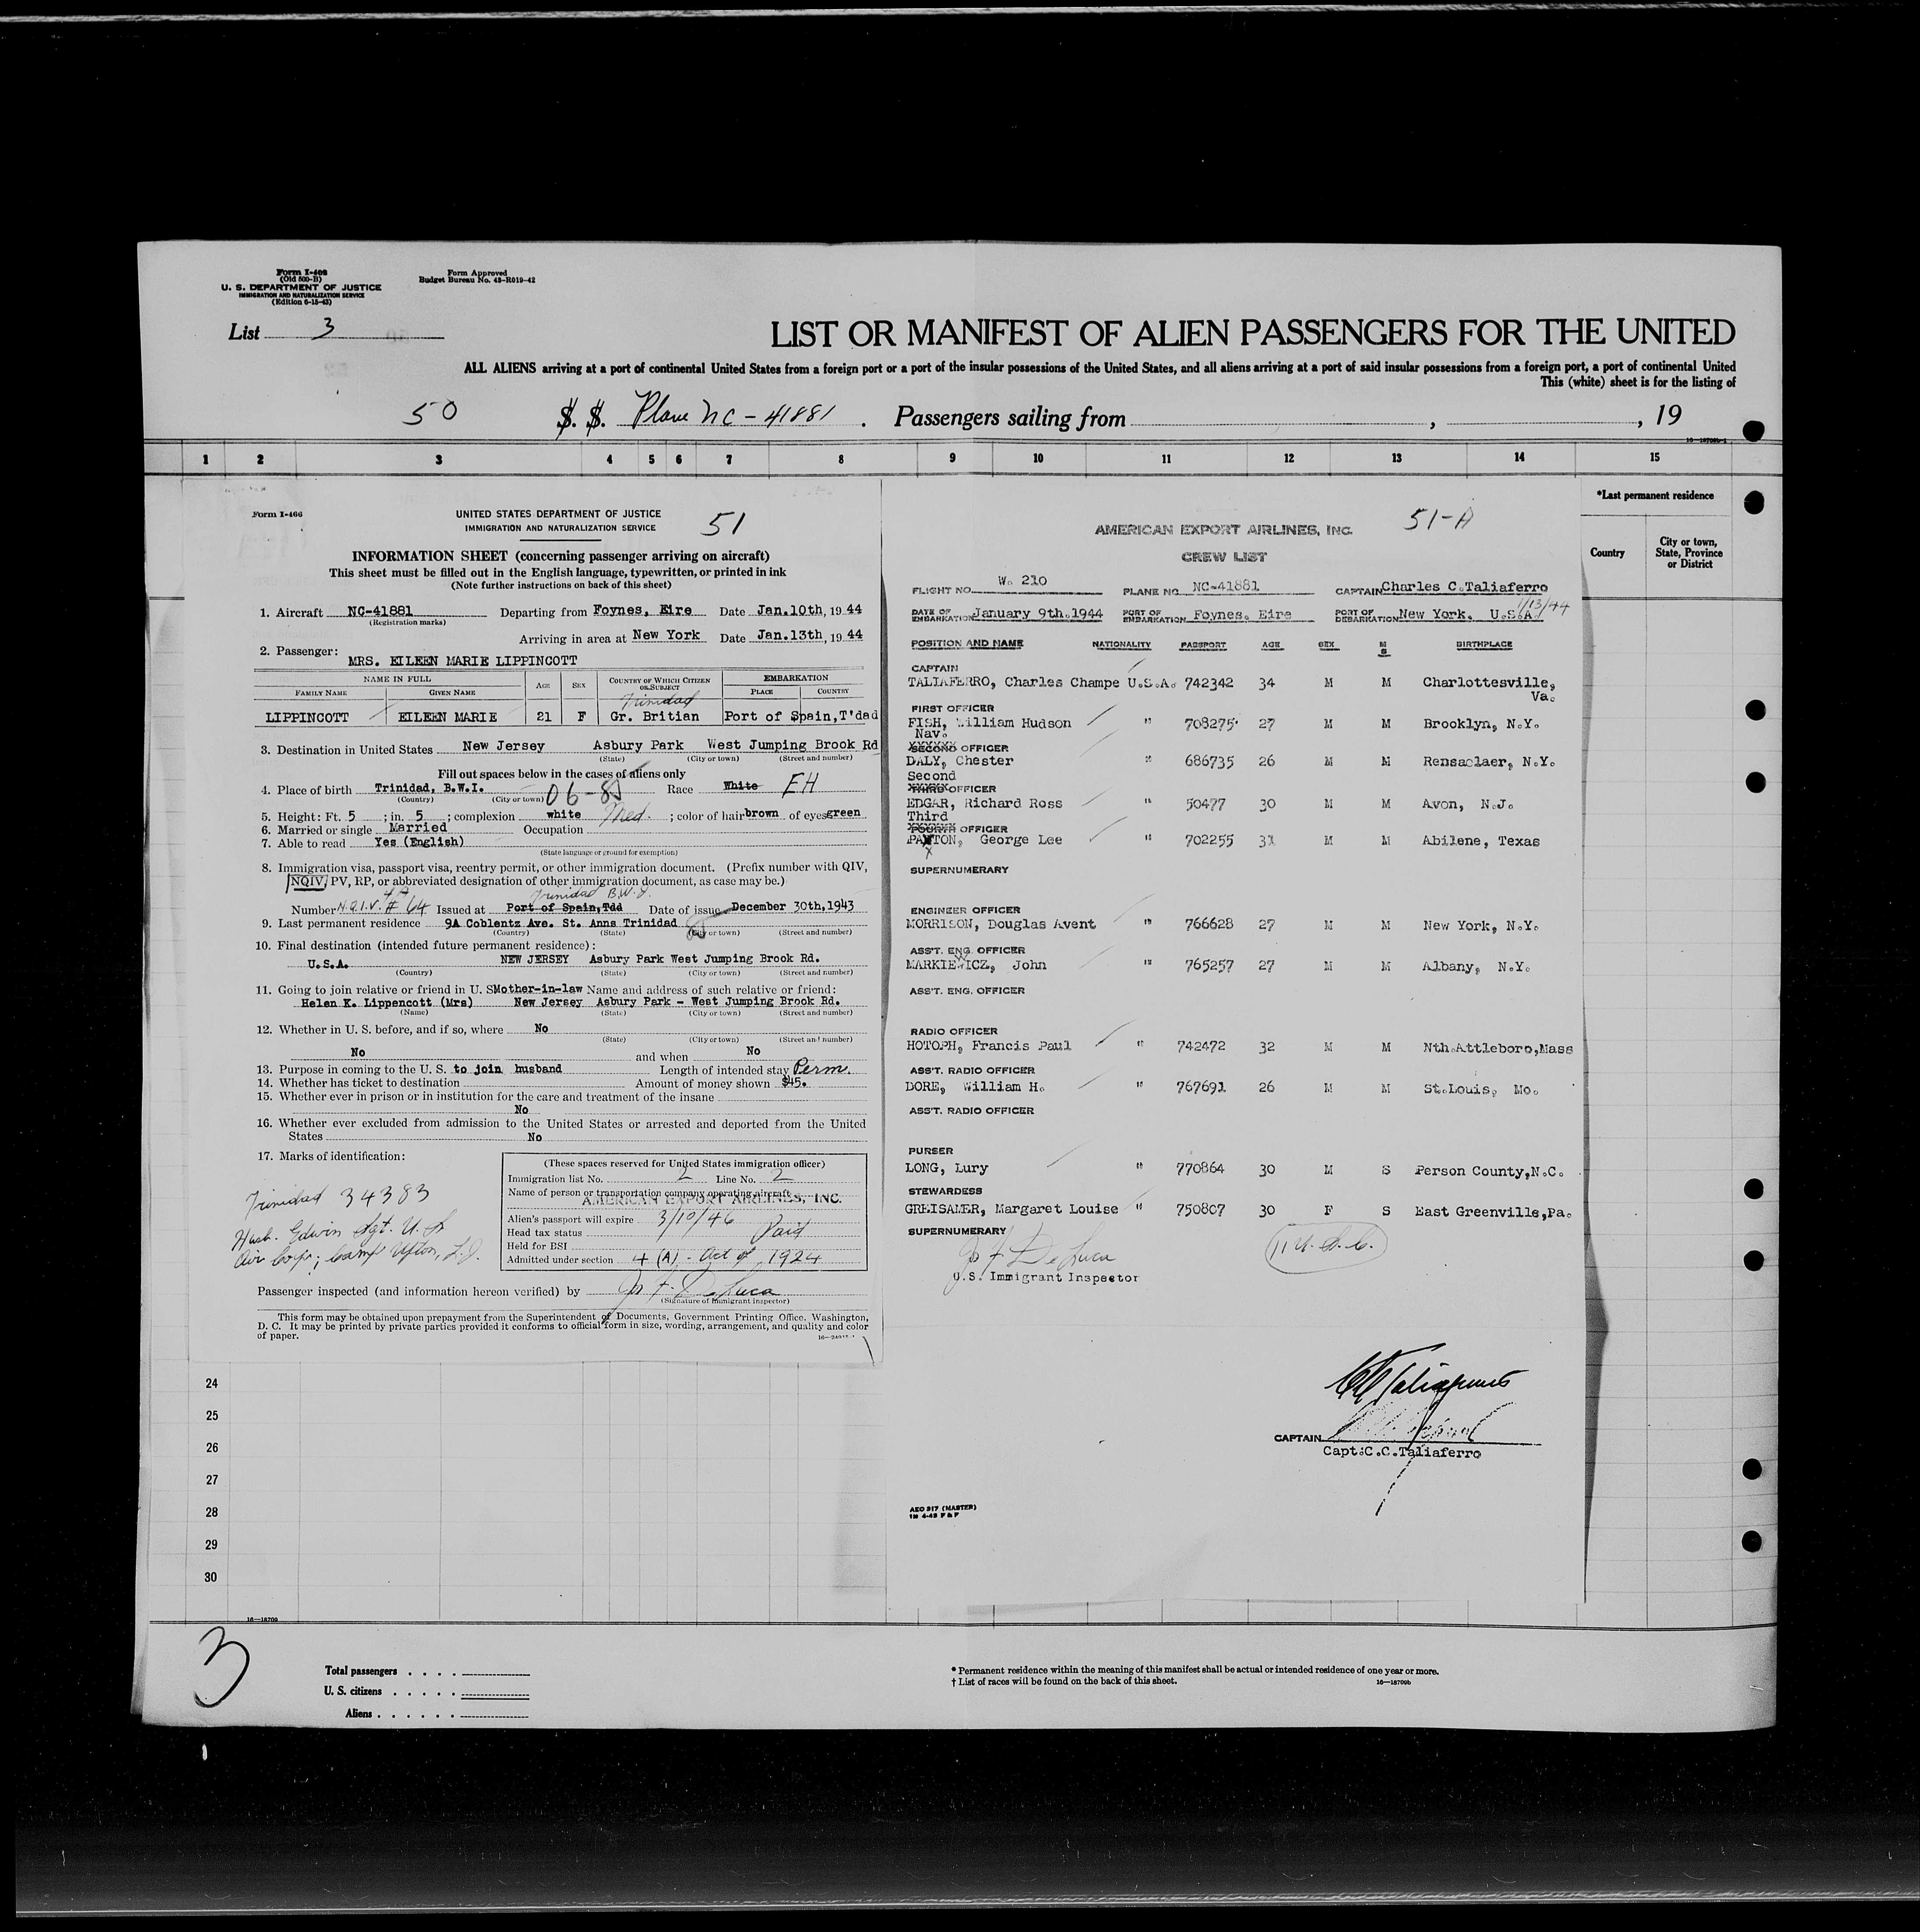 Form I-408
(Old 500-B)
U. S. DEPARTMENT OF JUSTICE
IMMIGRATION AND NATURALIZATION SERVICE
(Edition 6-15-43)
Form Approved
Budget Bureau No. 43-R019-42
List 3
LIST OR MANIFEST OF ALIEN PASSENGERS FOR THE UNITED
ALL ALIENS arriving at a port of continental United States from a foreign port or a port of the insular possessions of the United States, and all aliens arriving at a port of said insular possessions from a foreign port, a port of continental United
This (white) sheet is for the listing of
50 S. S. Plane NC-41881 . Passengers sailing from , , 19
1 2 3 4 5 6 7 8 9 10 11 12 13 14 15
*Last permanent residence
Country
City or town, State, Province or District
Form I-466
UNITED STATES DEPARTMENT OF JUSTICE
IMMIGRATION AND NATURALIZATION SERVICE
51
INFORMATION SHEET (concerning passenger arriving on aircraft)
This sheet must be filled out in the English language, typewritten, or printed in ink
(Note further instructions on back of this sheet)
1. Aircraft NC-41881 Departing from Foynes, Eire Date Jan.10th, 19 44
(Registration marks)
Arriving in area at New York Date Jan.13th, 19 44
2. Passenger:
MRS. EILEEN MARIE LIPPINCOTT
NAME IN FULL AGE SEX COUNTRY OF WHICH CITIZEN OR SUBJECT EMBARKATION
FAMILY NAME GIVEN NAME PLACE COUNTRY
Trinidad
LIPPINCOTT EILEEN MARIE 21 F Gr. Britian Port of Spain,T'dad
3. Destination in United States New Jersey Asbury Park West Jumping Brook Rd
(State) (City or town) (Street and number)
Fill out spaces below in the cases of aliens only
4. Place of birth Trinidad, B.W.I. 06-85 Race White EH
(Country) (City or town)
5. Height: Ft. 5 ; in. 5 ; complexion white Med. ; color of hair brown of eyes green
6. Married or single Married Occupation
7. Able to read Yes (English)
(State language or ground for exemption)
8. Immigration visa, passport visa, reentry permit, or other immigration document. (Prefix number with QIV,
NQIV, PV, RP, or abbreviated designation of other immigration document, as case may be.)
Trinidad B.W.I.
Number N.Q.I.V. # 64 Issued at Port of Spain,Tdd Date of issue December 30th,1943
9. Last permanent residence 9A Coblentz Ave. St. Anns Trinidad
(Country) (State) (City or town) (Street and number)
10. Final destination (intended future permanent residence):
U.S.A. NEW JERSEY Asbury Park West Jumping Brook Rd.
(Country) (State) (City or town) (Street and number)
11. Going to join relative or friend in U. S Mother-in-law Name and address of such relative or friend:
Helen K. Lippencott (Mrs) New Jersey Asbury Park - West Jumping Brook Rd.
(Name) (State) (City or town) (Street and number)
12. Whether in U. S. before, and if so, where No
(State) (City or town) (Street and number)
No and when No
13. Purpose in coming to the U. S. to join husband Length of intended stay Perm.
14. Whether has ticket to destination Amount of money shown $45.
15. Whether ever in prison or in institution for the care and treatment of the insane
No
16. Whether ever excluded from admission to the United States or arrested and deported from the United
States No
17. Marks of identification:
Trinidad 34383
Husb. Edwin Sgt. U. S.
Air Corps; Camp Upton, L.I.
(These spaces reserved for United States immigration officer)
Immigration list No. 2 Line No. 2
Name of person or transportation company operating aircraft
AMERICAN EXPORT AIRLINES, INC.
Alien's passport will expire 3/10/46
Head tax status Paid
Held for BSI
Admitted under section 4 (A) - Act of 1924
Passenger inspected (and information hereon verified) by Jos F. DeLuca
(Signature of immigrant inspector)
This form may be obtained upon prepayment from the Superintendent of Documents, Government Printing Office, Washington,
D. C. It may be printed by private parties provided it conforms to official form in size, wording, arrangement, and quality and color
of paper.
24
25
26
27
28
29
30
16—18709
51-A
AMERICAN EXPORT AIRLINES, INC.
CREW LIST
FLIGHT NO. W. 210 PLANE NO. NC-41881 CAPTAIN Charles C.Taliaferro
1/13/44
DATE OF EMBARKATION January 9th.1944 PORT OF EMBARKATION Foynes. Eire PORT OF DEBARKATION New York. U.S.A.
POSITION AND NAME NATIONALITY PASSPORT AGE SEX M S BIRTHPLACE
CAPTAIN
TALIAFERRO, Charles Champe U.S.A. 742342 34 M M Charlottesville, Va.
FIRST OFFICER
FISH, William Hudson " 708275 27 M M Brooklyn, N.Y.
Nav.
SECOND OFFICER
DALY, Chester " 686735 26 M M Rensaelaer, N.Y.
Second
THIRD OFFICER
EDGAR, Richard Ross " 50477 30 M M Avon, N.J.
Third
FOURTH OFFICER
PAXTON, George Lee " 702255 31 M M Abilene, Texas
X
SUPERNUMERARY
ENGINEER OFFICER
MORRISON, Douglas Avent " 766628 27 M M New York, N.Y.
ASS'T. ENG. OFFICER
MARKIEWICZ, John " 765257 27 M M Albany, N.Y.
ASS'T. ENG. OFFICER
RADIO OFFICER
HOTOPH, Francis Paul " 742472 32 M M Nth.Attleboro,Mass
ASS'T. RADIO OFFICER
DORE, William H. " 767691 26 M M St.Louis, Mo.
ASS'T. RADIO OFFICER
PURSER
LONG, Lury " 770864 30 M S Person County,N.C.
STEWARDESS
GREISAMER, Margaret Louise " 750807 30 F S East Greenville,Pa.
SUPERNUMERARY
Jos F DeLuca
U.S. Immigrant Inspector
11 U.S.C.
CAPTAIN
Capt.C.C.Taliaferro
AEO 317 (MASTER)
1M 4-43 F & F
3
Total passengers
U. S. citizens
Aliens
* Permanent residence within the meaning of this manifest shall be actual or intended residence of one year or more.
† List of races will be found on the back of this sheet.
16—18709b